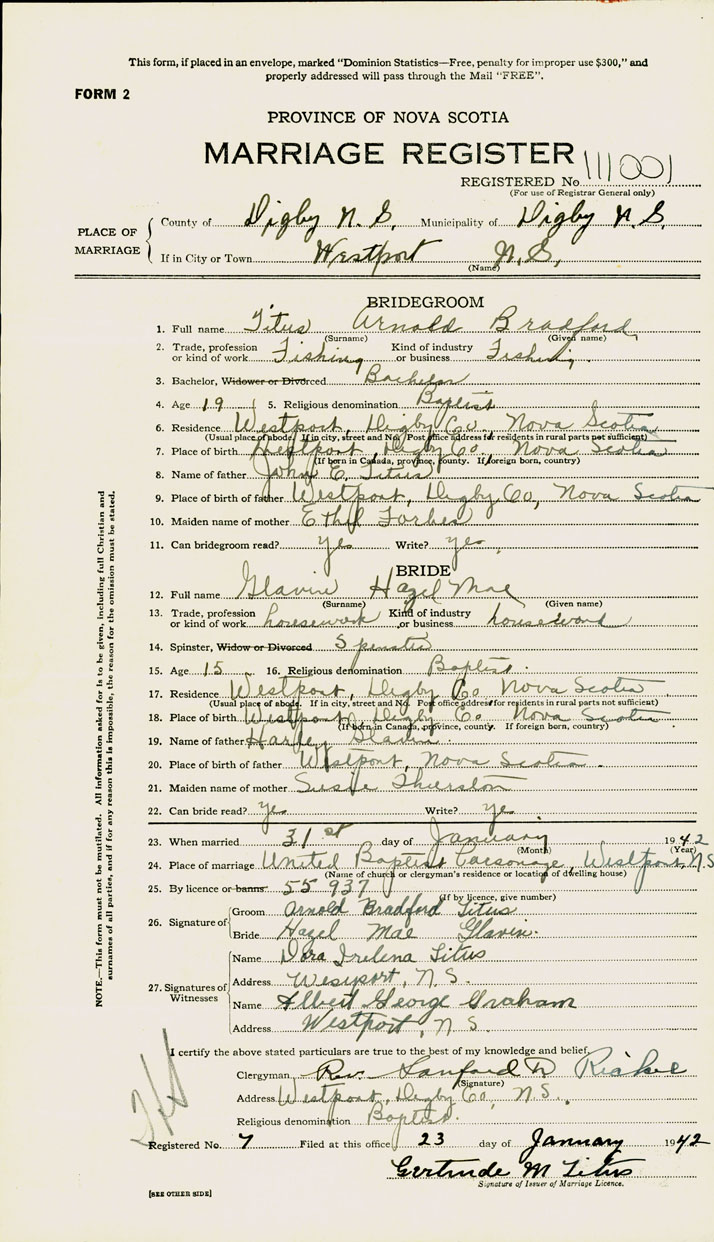 This form, if placed in an envelope, marked "Dominion Statistics—Free, penalty for improper use $300," and
properly addressed will pass through the Mail "FREE".
FORM 2
PROVINCE OF NOVA SCOTIA
MARRIAGE REGISTER
REGISTERED No. 111001
(For use of Registrar General only)
PLACE OF MARRIAGE
County of Digby N. S. Municipality of Digby N. S.
If in City or Town Westport N. S.
(Name)
BRIDEGROOM
1. Full name Titus Arnold Bradford
(Surname) (Given name)
2. Trade, profession or kind of work Fishing Kind of industry or business Fishing
3. Bachelor, Widower or Divorced Bachelor
4. Age 19 5. Religious denomination Baptist
6. Residence Westport, Digby Co. Nova Scotia
(Usual place of abode. If in city, street and No. Post office address for residents in rural parts not sufficient)
7. Place of birth Westport, Digby Co Nova Scotia
(If born in Canada, province, county. If foreign born, country)
8. Name of father John E. Titus
9. Place of birth of father Westport, Digby Co, Nova Scotia
10. Maiden name of mother Ethel Forbes
11. Can bridegroom read? yes Write? yes
BRIDE
12. Full name Glavin Hazel Mae
(Surname) (Given name)
13. Trade, profession or kind of work housework Kind of industry or business housework
14. Spinster, Widow or Divorced Spinster
15. Age 15 16. Religious denomination Baptist.
17. Residence Westport, Digby Co Nova Scotia
(Usual place of abode. If in city, street and No. Post office address for residents in rural parts not sufficient)
18. Place of birth Westport, Digby Co Nova Scotia
(If born in Canada, province, county. If foreign born, country)
19. Name of father Glavin
20. Place of birth of father Westport, Nova Scotia.
21. Maiden name of mother Susie Thurston
22. Can bride read? yes Write? yes
23. When married 31st day of January 1942
(Month) (Year)
24. Place of marriage United Baptist Parsonage, Westport, N.S
(Name of church or clergyman's residence or location of dwelling house)
25. By licence or banns 55937
(If by licence, give number)
26. Signature of
Groom Arnold Bradford Titus
Bride Hazel Mae Glavin.
27. Signatures of Witnesses
Name Dora Titus
Address Westport, N.S.
Name Albert George Graham
Address Westport, N.S.
I certify the above stated particulars are true to the best of my knowledge and belief.
Clergyman Rev. Sanford D
(Signature)
Address Westport, Digby Co, N.S.
Religious denomination Baptist.
Registered No. 7 Filed at this office 23 day of January 1942
Gertrude M Titus
Signature of Issuer of Marriage Licence.
[SEE OTHER SIDE]
NOTE.—This form must not be mutilated. All information asked for is to be given, including full Christian and
surnames of all parties, and if for any reason this is impossible, the reason for the omission must be stated.